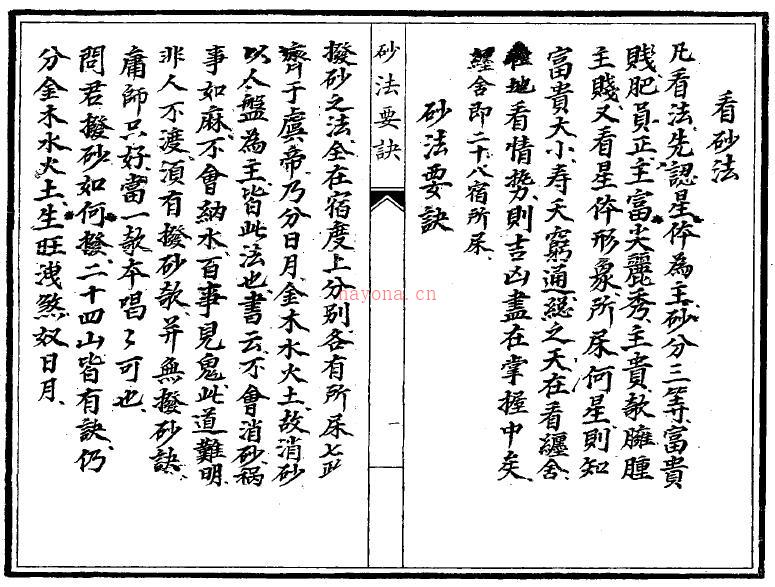 看砂法
凡看法先認星体為主砂分三等富貴
賤肥員正主富尖麗秀主貴欹臃腫
主賤又看星体形象所屎何星則知
富貴大小寿夭窮通総之天在看纒舍
地看情势則吉凶盡在掌握中矣
纒舍即二十八宿所屎
砂法要訣
砂法要訣
一
撥砂之法全在宿度上分别各有所屎七政
齊于虞帝乃分日月金木水火土故消砂
以人盤為主皆此法也書云不會消砂祸
事如麻不會納水百事見鬼此道難明
非人不渡湏有撥砂欹并無撥砂訣
庸師只好當一欹本唱々可也
問君撥砂如何撥二十四山皆有訣仍
分金木水火土生旺洩煞奴日月
nayona.cn